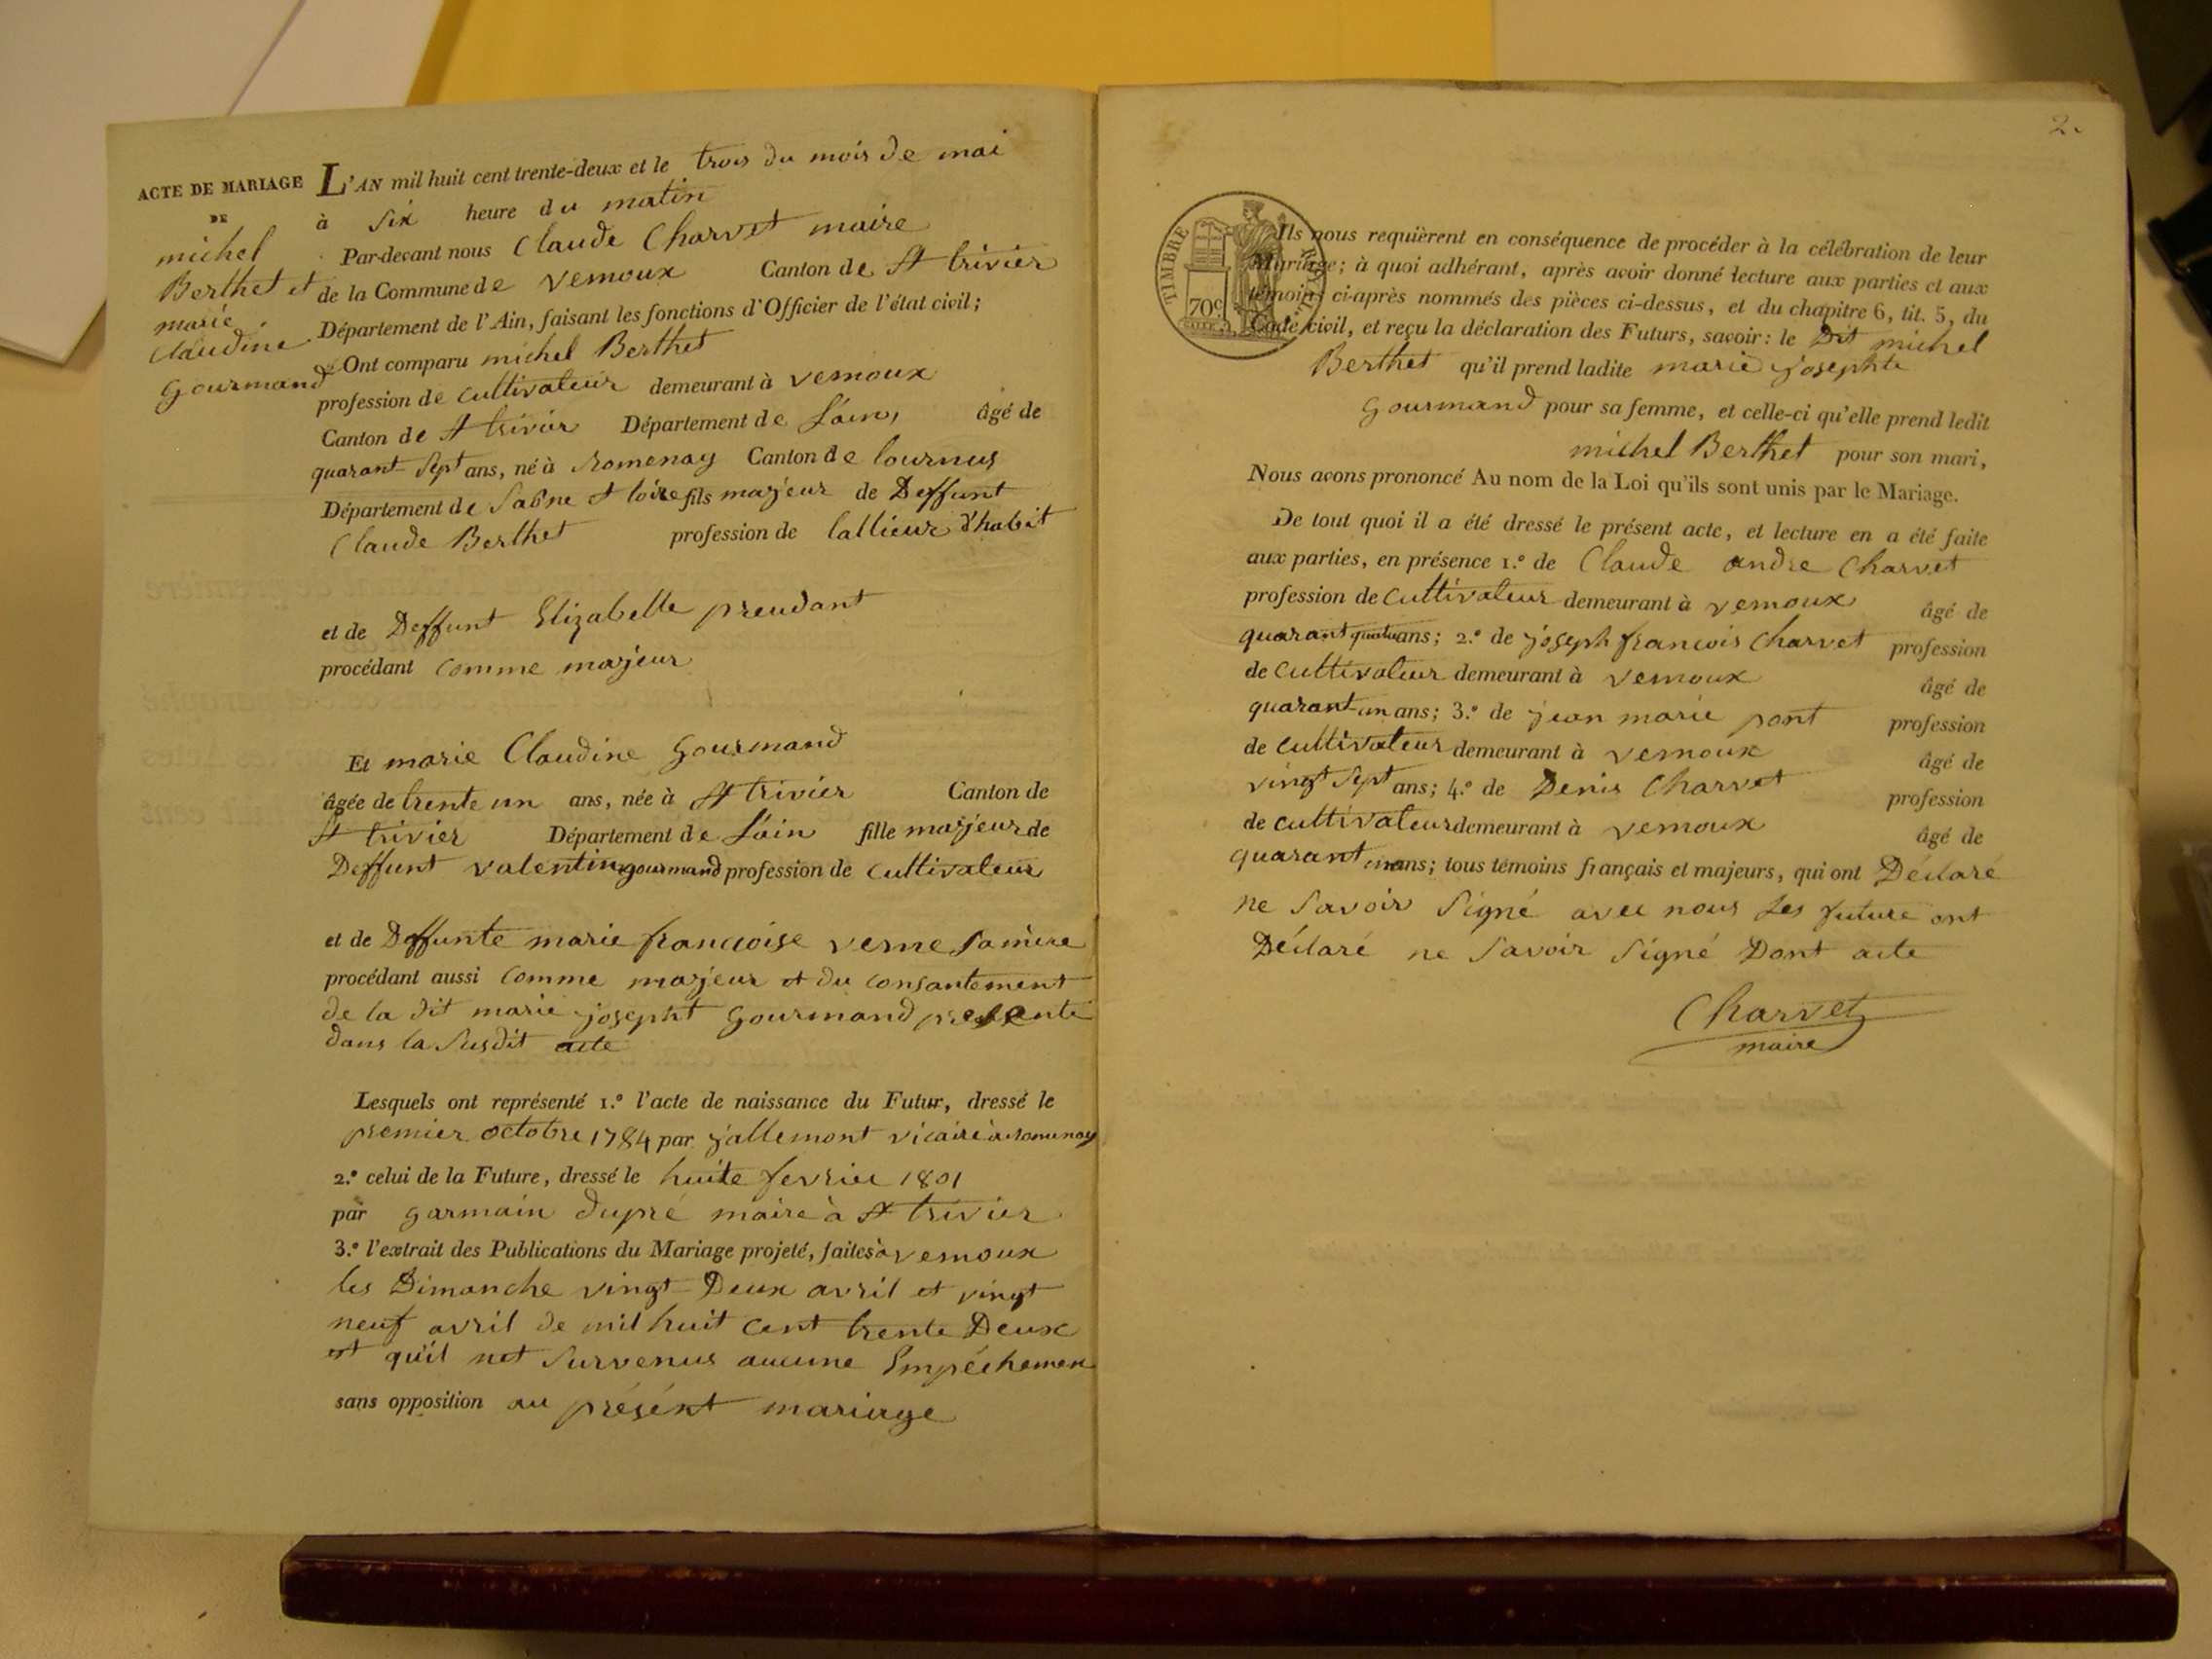 ACTE DE MARIAGE
DE
michel
Berthet et
marie
Claudine
Gourmand
L'AN mil huit cent trente-deux et le trois du mois de mai
à Six heure du matin
Par-devant nous Claude Charvet maire
de la Commune de Vernoux Canton de St trivier
Département de l'Ain, faisant les fonctions d'Officier de l'état civil;
Ont comparu michel Berthet
profession de cultivateur demeurant à vernoux
Canton de St trivier Département de L'ain, âgé de
quarant Sept ans, né à Romenay Canton de tournus
Département de Saône et loire fils majeur de Deffunt
Claude Berthet profession de tallieur d'habit
et de Deffunt Elizabelle preudant
procédant comme majeur
Et marie Claudine Gourmand
âgée de trente un ans, née à St trivier Canton de
St trivier Département de L'ain fille majeur de
Deffunt valentin gourmand profession de cultivateur
et de Deffunte marie francoise verne Sa mere
procédant aussi comme majeur et du consantement
de la dit marie josepht Gourmand presente
dans la Susdit acte
Lesquels ont représenté 1.º l'acte de naissance du Futur, dressé le
premier octobre 1784 par jallemont vicaire à romenay
2.º celui de la Future, dressé le huite fevrier 1801
par garmain dupré maire à St trivier
3.º l'extrait des Publications du Mariage projeté, faites à vernoux
les Dimanche vingt Deux avril et vingt
neuf avril de mil huit cent trente Deux
et qu'il net Survenus aucune Empéchemen
sans opposition au présent mariage
2.
TIMBRE ROYAL
70c
Ils nous requièrent en conséquence de procéder à la célébration de leur
Mariage; à quoi adhérant, après avoir donné lecture aux parties et aux
témoins ci-après nommés des pièces ci-dessus, et du chapitre 6, tit. 5, du
Code civil, et reçu la déclaration des Futurs, savoir: le Dit michel
Berthet qu'il prend ladite marie josephte
Gourmand pour sa femme, et celle-ci qu'elle prend ledit
michel Berthet pour son mari,
Nous avons prononcé Au nom de la Loi qu'ils sont unis par le Mariage.
De tout quoi il a été dressé le présent acte, et lecture en a été faite
aux parties, en présence 1.º de Claude andre Charvet
profession de cultivateur demeurant à vernoux âgé de
quarant quatre ans; 2.º de joseph francois Charvet profession
de cultivateur demeurant à vernoux âgé de
quarant un ans; 3.º de jean marie pont profession
de cultivateur demeurant à vernoux âgé de
vingt Sept ans; 4.º de Denis Charvet profession
de cultivateur demeurant à vernoux âgé de
quarant un ans; tous témoins français et majeurs, qui ont Déclaré
ne Savoir Signé avec nous Les future ont
Déclaré ne Savoir Signé Dont acte
Charvet
maire